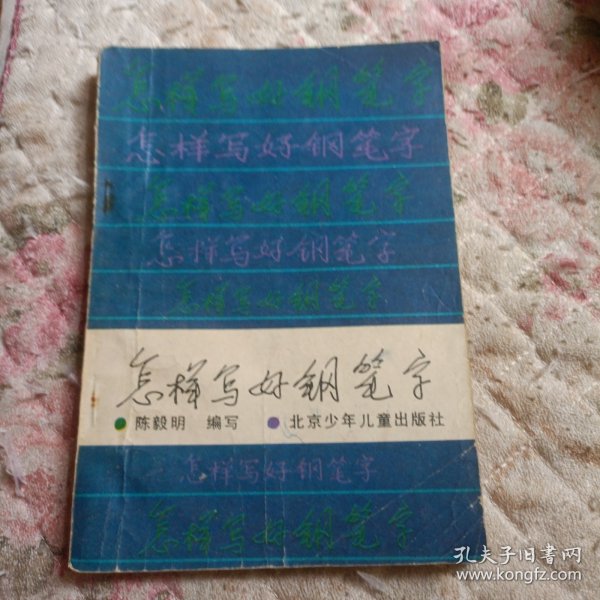 怎样写好钢笔字
怎样写好钢笔字
怎样写好钢笔字
怎样写好钢笔字
怎样写好钢笔字
怎样写好钢笔字
陈毅明 编写 北京少年儿童出版社
怎样写好钢笔字
怎样写好钢笔字
孔夫子旧书网
www.kongfz.com